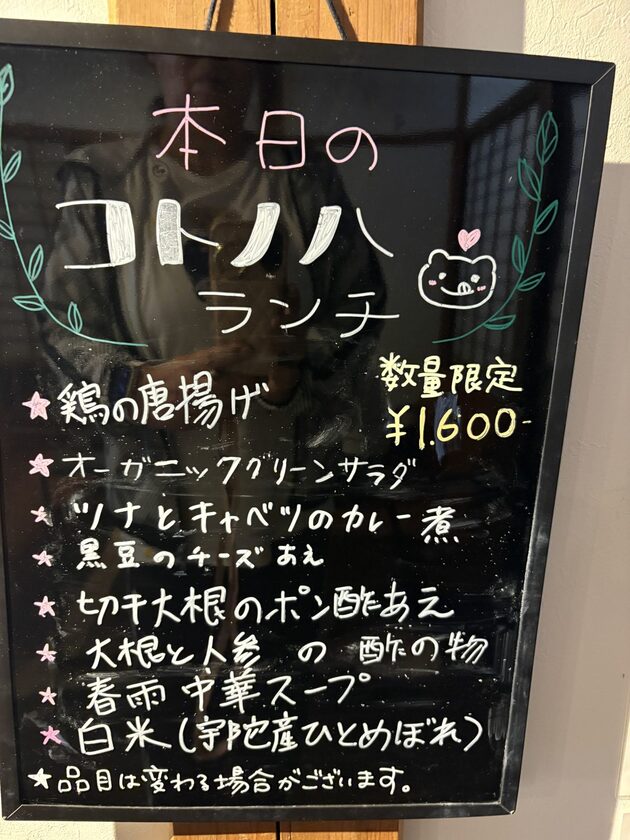 本日の
コトノハ
ランチ
数量限定
¥1.600-
★鶏の唐揚げ
★オーガニックグリーンサラダ
★ツナとキャベツのカレー煮
★黒豆のチーズあえ
★切干大根のポン酢あえ
★大根と人参の酢の物
★春雨中華スープ
★白米(宇陀産ひとめぼれ)
★品目は変わる場合がございます。